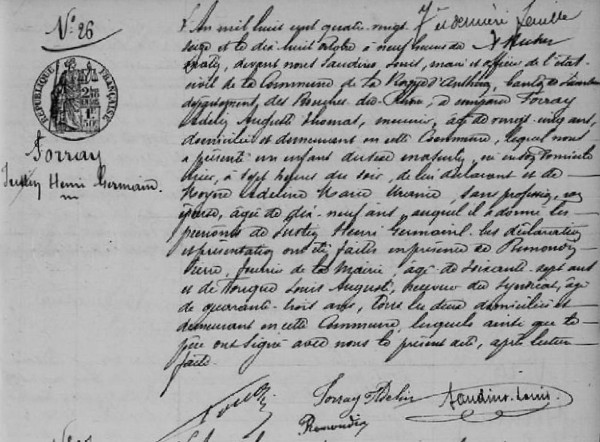 N.º 26
REPUBLIQUE FRANÇAISE
Torray
Justin Henri Germain
7e et dernière feuille
L'An mil huit cent quatre-vingt
seize et le dix huit octobre à neuf heures du
devant nous Laudius Louis, maire officier de l'état
civil de la Commune de la Roque d'Anthéron, canton de
département des Bouches-du-Rhône, a comparu Torray
Adelin Auguste Thomas, meunier, âgé de vingt cinq ans,
domicilié et demeurant en cette Commune, lequel nous
a présenté un enfant du sexe masculin, né en son domicile
hier, à sept heures du soir, de lui déclarant et de
Adeline Marie sans profession, son
épouse, âgée de dix-neuf ans, auquel il a donné les
prénoms de Justin Henri Germain. Les déclaration
et présentation ont été faites en présence de Remondin
Pierre, fourrier de la Mairie, âgé de soixante-sept ans
et de Louis Auguste, receveur du Syndicat, âgé
de quarante-trois ans, tous les deux domiciliés et
demeurant en cette Commune, lesquels ainsi que le
père ont signé avec nous le présent acte, après lecture
faite.
Torray Adelin
Remondin
Louis